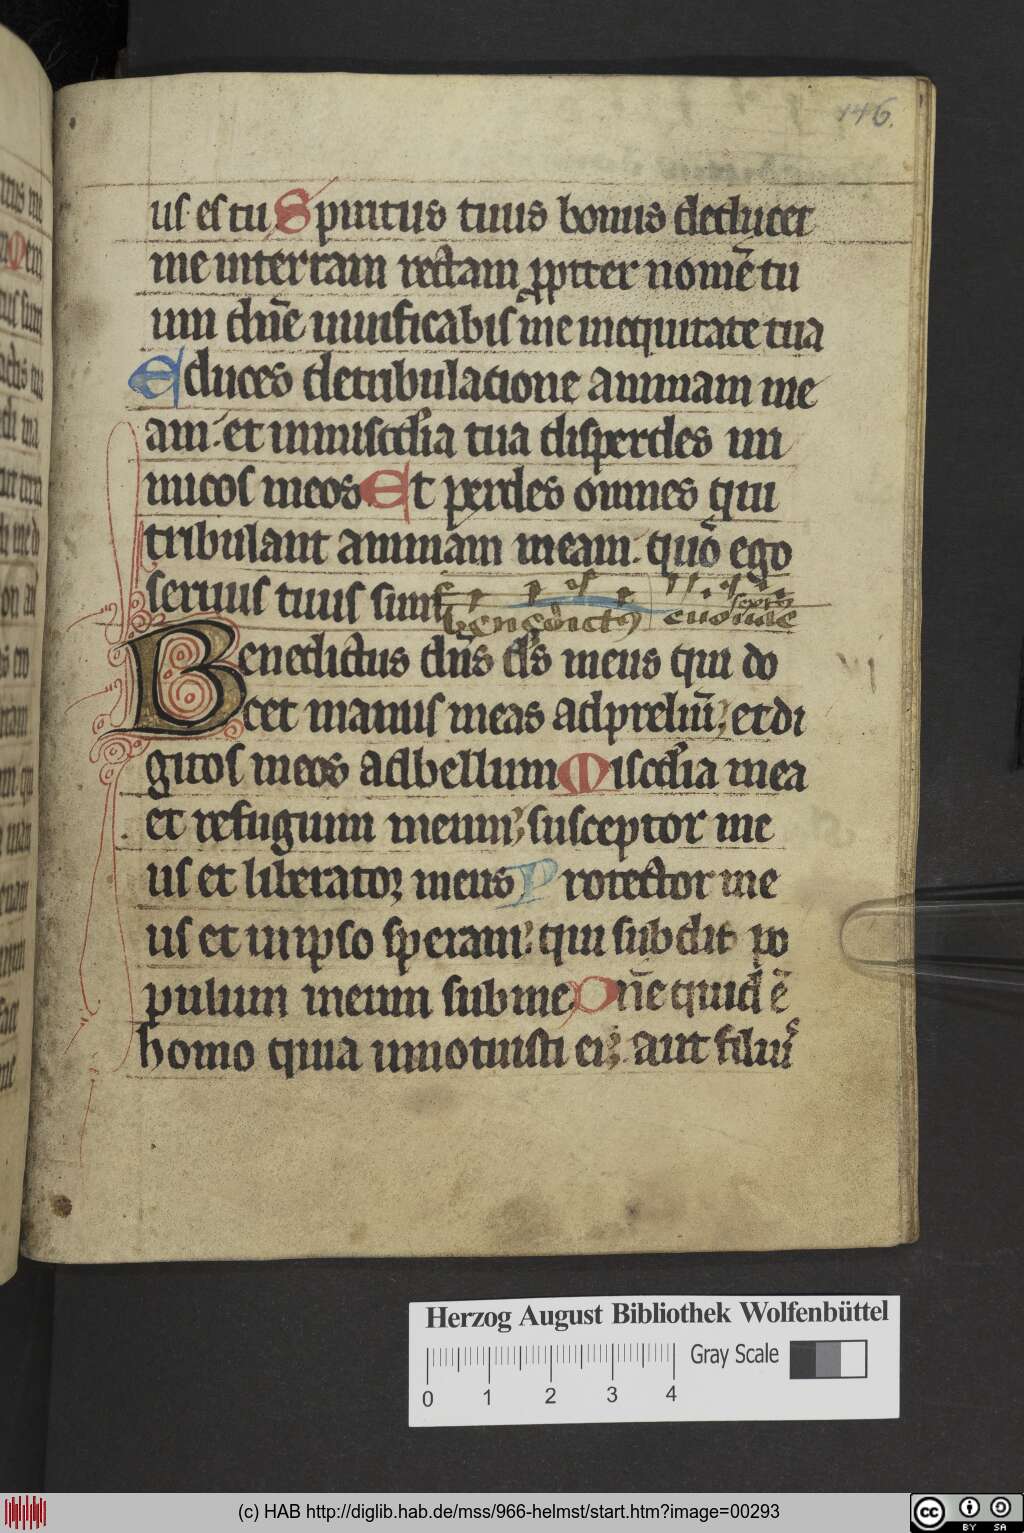 146.
us es tu Spiritus tuus bonus deducet
me in terram rectam ꝓpter nomē tu
um dn̄e uiuificabis me in equitate tua
Educes de tribulatione animam me
am. et in misc̄dia tua disperdes ini
micos meos Et perdes omnes qui
tribulant animam meam. quō ego
seruus tuus sum
benedictꝰ euouae
Benedictus dn̄s ds̄ meus qui do
cet manus meas ad preliū; et di
gitos meos ad bellum Misc̄dia mea
et refugium meum; susceptor me
us et liberator meus Protector me
us et in ipso speraui: qui subdit po
pulum meum sub me Dn̄e quid ē
homo quia innotuisti ei; aut filiꝰ
Herzog August Bibliothek Wolfenbüttel
Gray Scale
0 1 2 3 4
(c) HAB http://diglib.hab.de/mss/966-helmst/start.htm?image=00293
cc BY SA